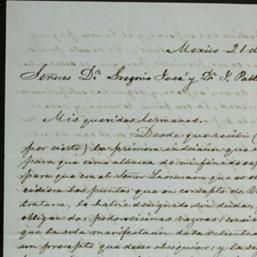 Mexico 21 d
Señores Dn. Gregorio José y Dn. J. Pabl
Mis queridos hermanos.
Desde que recibí (
por cierto) la primera intención que
para que como albacea de mi finado esp
para que con el Señor
los puntos que en concepto de
tratarse, lo habria designado sin duda,
obligandas poderosisimas razones:
que la sola manifestacion de la
un precepto que debo obsequiar: y la